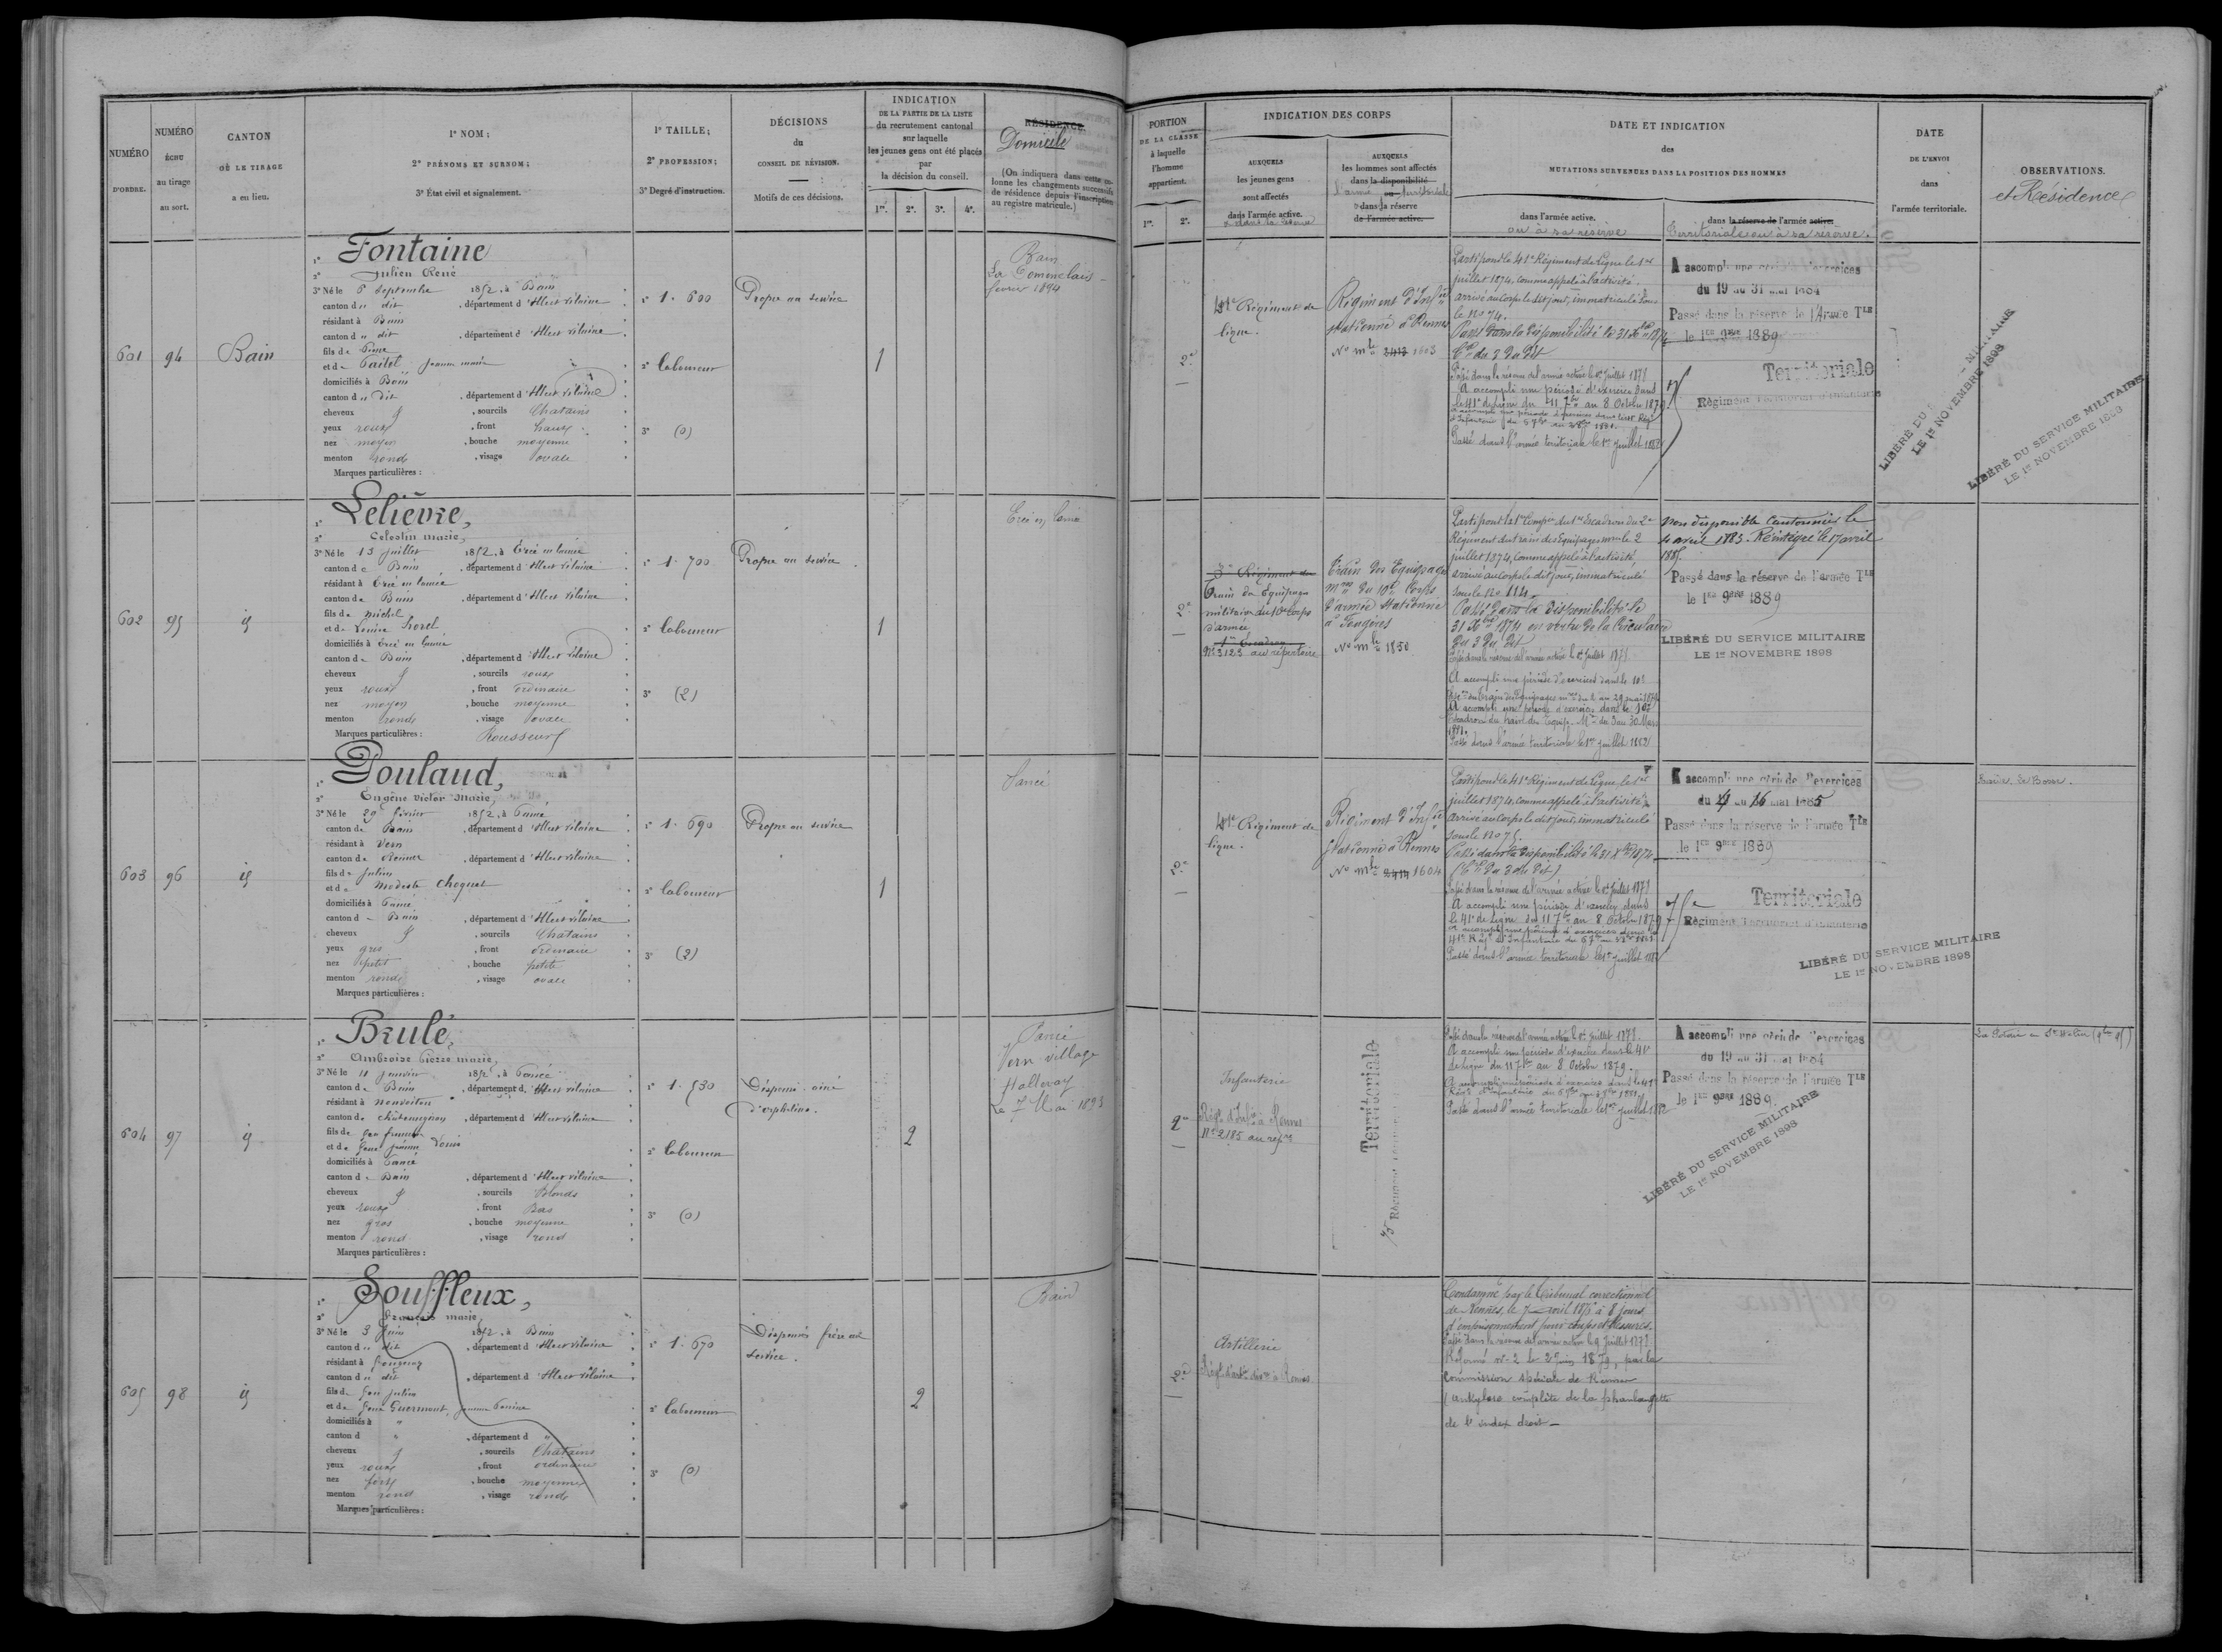 NUMÉRO
D'ORDRE.
NUMÉRO
ÉCHU
au tirage
au sort.
CANTON
OÙ LE TIRAGE
a eu lieu.
1° NOM;
2° PRÉNOMS ET SURNOM;
3° État civil et signalement.
1° TAILLE;
2° PROFESSION;
3° Degré d'instruction.
DÉCISIONS
du
CONSEIL DE RÉVISION.
Motifs de ces décisions.
INDICATION
DE LA PARTIE DE LA LISTE
du recrutement cantonal
sur laquelle
les jeunes gens ont été placés
par
la décision du conseil.
1re. 2e. 3e. 4e.
RÉSIDENCE.
Domicile
(On indiquera dans cette co-
lonne les changements successifs
de résidence depuis l'inscription
au registre matricule.)
PORTION
DE LA CLASSE
à laquelle
l'homme
appartient.
1re. 2e.
INDICATION DES CORPS
AUXQUELS
les jeunes gens
sont affectés
dans l'armée active.
et dans la réserve
AUXQUELS
les hommes sont affectés
dans la disponibilité
l'armée ou territoriale
dans la réserve
de l'armée active.
DATE ET INDICATION
des
MUTATIONS SURVENUES DANS LA POSITION DES HOMMES
dans l'armée active.
ou à sa réserve
dans la réserve de l'armée active.
Territoriale ou à sa réserve.
DATE
DE L'ENVOI
dans
l'armée territoriale.
OBSERVATIONS.
et Résidence
601
94
Bain
1° Fontaine
2° Julien René
3° Né le 6 Septembre 1852, à Bain
canton d u dit, département d'Ille et vilaine
résidant à Bain
canton d u dit, département d'Ille et vilaine
fils de Pierre
et de Jeanne marie
domiciliés à Bain
canton d u Dit, département d'Ille et vilaine
cheveux, sourcils Chatains
yeux roux, front haut
nez moyen, bouche moyenne
menton rond, visage ovale
Marques particulières :
1° 1.600
2° Laboureur
3° (0)
Propre au service
1
Bain
février 1894
2e
41e Régiment de
ligne.
Régiment d'Inf.ie
stationné à Rennes
No mle 2413 1603
Parti pour le 41e Régiment de Ligne le 1er
juillet 1874, comme appelé à l'activité.
arrivé au Corps le dit jour, immatriculé sous
le No 74.
Passé dans la disponibilité le 31 Xbre 1874
Passé dans la réserve de l'armée active le 1er Juillet 1878
A accompli une période d'exercices dans
le 41e de ligne du 11 7bre au 8 Octobre 1879.
Passé dans l'armée territoriale le 1er juillet 1882
A accompli une période d'exercices
du 19 au 31 mai 1884
Passé dans la réserve de l'Armée Tle
le 1er 9bre 1889
Territoriale
Régiment Territorial d'Infanterie
LIBÉRÉ DU MILITAIRE
LE 1er NOVEMBRE 1898
LIBÉRÉ DU SERVICE MILITAIRE
LE 1er NOVEMBRE 1898
602
95
id
1° Lelièvre,
2° Celestin marie,
3° Né le 13 juillet 1852, à Ercé en lamée
canton d e Bain, département d'Ille et vilaine
résidant à Ercé en lamée
canton de Bain, département d'Ille et vilaine
fils de michel
et de Louise horel
domiciliés à Ercé en lamée
canton de Bain, département d'Ille et vilaine
cheveux, sourcils roux
yeux roux, front ordinaire
nez moyen, bouche moyenne
menton rond, visage ovale
Marques particulières : Rousseurs
1° 1.700
2° Laboureur
3° (2)
Propre au service.
1
Ercé en lamée
2e
3e Régiment du
Train des Equipages
militaires du 10e Corps
d'armée
1er Escadron
No 3123 au répertoire
Train des Equipages
mres du 10e Corps
d'armée stationné
à Fougères
No mle 1850
Régiment du train des Equipages mres le 2
juillet 1874, comme appelé à l'activité,
arrivé au corps le dit jour, immatriculé
sous le No 114.
Passé dans la disponibilité le
31 Xbre 1874 en vertu de la Circulaire
du 3 du dit
Passé dans la réserve de l'armée active le 1er Juillet 1878
A accompli une période d'exercices dans le 10e
A accompli une période d'exercices dans le 10e
Escadron du train des Equip. Mres du 3 au 30 Mars
1881.
Passé dans l'armée territoriale le 1er juillet 1882
Non disponible Cantonnier le
4 avril 1883. Réintégré le 17 avril
1885.
Passé dans la réserve de l'armée Tle
le 1er 9bre 1889
LIBÉRÉ DU SERVICE MILITAIRE
LE 1er NOVEMBRE 1898
603
96
id
1° Poulaud,
2° Eugène Victor Marie,
3° Né le 29 février 1852, à Pancé
canton de Bain, département d'Ille et vilaine
résidant à Vern
canton de Rennes, département d'Ille et vilaine
fils de Julien
et de Modeste Choquet
domiciliés à Pancé
canton d e Bain, département d'Ille et vilaine
cheveux, sourcils Chatains
yeux gris, front ordinaire
nez petit, bouche petite
menton rond, visage ovale
Marques particulières :
1° 1.690
2° Laboureur
3° (2)
Propre au service
1
Pancé
2e
41e Régiment de
ligne.
Régiment d'Inf.ie
stationné à Rennes
No mle 2414 1604
Parti pour le 41e Régiment de Ligne le 1er
juillet 1874, comme appelé à l'activité,
Arrivé au Corps le dit jour, immatriculé
sous le No 75.
Passé dans la disponibilité le 31 Xbre 1874
Passé dans la réserve de l'armée active le 1er Juillet 1878
A accompli une période d'exercices dans
le 41e de ligne du 11 7bre au 8 Octobre 1879
Passé dans l'armée territoriale le 1er juillet 1882
A accompli une période d'exercices
du 4 au 16 mai 1885
Passé dans la réserve de l'armée Tle
le 1er 9bre 1889
Territoriale
Régiment Territorial d'Infanterie
LIBÉRÉ DU SERVICE MILITAIRE
LE 1er NOVEMBRE 1898
604
97
id
1° Brulé,
2° Ambroise Pierre marie,
3° Né le 11 janvier 1852, à Pancé
canton de Bain, département d'Ille et vilaine
résidant à Nouvoitou
canton de châteaugiron, département d'Ille et vilaine
fils de feu francois
et de feue jeanne
domiciliés à Pancé
canton d e Bain, département d'Ille et vilaine
cheveux, sourcils Blonds
yeux roux, front Bas
nez gros, bouche moyenne
menton rond, visage rond
Marques particulières :
1° 1.530
2° Laboureur
3° (0)
Dispensé ainé
d'orphelins.
2
Pancé
Vern village
Le 7 Mai 1893
2e
Infanterie
Régt d'Infie à Rennes
No 2185 au repre
Territoriale
Passé dans la réserve de l'armée active le 1er Juillet 1878
A accompli une période d'exercices dans le 41e
de ligne du 11 7bre au 8 Octobre 1879.
Passé dans l'armée territoriale le 1er juillet 1882
A accompli une période d'exercices
du 19 au 31 mai 1884
Passé dans la réserve de l'armée Tle
le 1er 9bre 1889.
LIBÉRÉ DU SERVICE MILITAIRE
LE 1er NOVEMBRE 1898
605
98
id
1° Souffleux,
2° François marie
3° Né le 3 Juin 1852, à Bain
canton d u dit, département d'Ille et vilaine
résidant à
canton d u dit, département d'Ille et vilaine
fils de feu Julien
et de feue Guermont, jeanne Perrine
domiciliés à "
canton d ", département d "
cheveux, sourcils Chatains
yeux roux, front ordinaire
nez fort, bouche moyenne
menton rond, visage rond
Marques particulières :
1° 1.670
2° Laboureur
3° (0)
Dispensé frère au
service.
2
Bain
2e
Artillerie
Condamné par le Tribunal correctionnel
de Rennes, le 7 avril 1875 à 8 jours
d'emprisonnement pour coups et blessures.
Passé dans la réserve de l'armée active le 1er Juillet 1878
Réformé No 2 le 2 Juin 1879, par la
Commission spéciale de Rennes
(ankylose complète de la phalangette
de l'index droit —